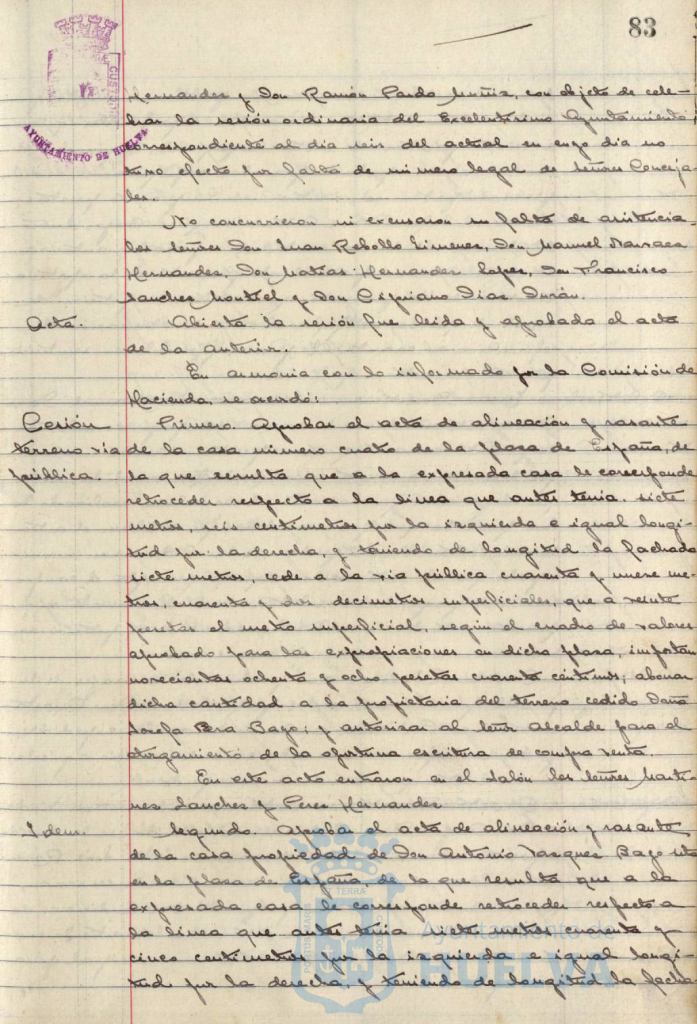 83
CUSTODIO
AYUNTAMIENTO DE HUELVA
Hernandez y Don Ramón Pardo Muñiz, con objeto de cele-
brar la sesión ordinaria del Excelentísimo Ayuntamiento
correspondiente al dia seis del actual en cuyo dia no
tuvo efecto por falta de número legal de señores Conceja-
les.
No concurrieron ni excusaron su falta de asistencia
los señores Don Juan Rebollo Jimenez, Don Manuel Narvaez
Hernandez, Don Matias Hernandez Lopez, Don Francisco
Sanchez Montiel y Don Cipriano Diaz Durán.
Acta.
Abierta la sesión fue leida y aprobada el acta
de la anterior.
En armonia con lo informado por la Comisión de
Hacienda, se acordó:
Cesión
terreno via
pública.
Primero. Aprobar el acta de alineación y rasante
de la casa número cuatro de la plaza de España, de
la que resulta que a la expresada casa le corresponde
retroceder respecto a la linea que antes tenia, siete
metros, seis centimetros por la izquierda e igual longi-
tud por la derecha, y teniendo de longitud la fachada
siete metros, cede a la via pública cuarenta y nueve me-
tros, cuarenta y dos decimetros superficiales, que a veinte
pesetas el metro superficial, según el cuadro de valores
aprobado para las expropiaciones en dicha plaza, importan
novecientas ochenta y ocho pesetas cuarenta céntimos; abonar
dicha cantidad a la propietaria del terreno cedido Doña
Josefa Bazo; y autorizar al señor Alcalde para el
otorgamiento de la oportuna escritura de compra venta.
En este acto entraron en el salón los señores Marti-
nez Sanchez y Perez Hernandez
Idem.
Segundo. Aprobar el acta de alineación y rasante
de la casa propiedad de Don Antonio Vazquez Bazo sita
en la plaza de España, de la que resulta que a la
expresada casa le corresponde retroceder respecto a
la linea que antes tenia siete metros cuarenta y
cinco centimetros por la izquierda e igual longi-
tud por la derecha, y teniendo de longitud la facha-
Ayuntamiento de
HUELVA